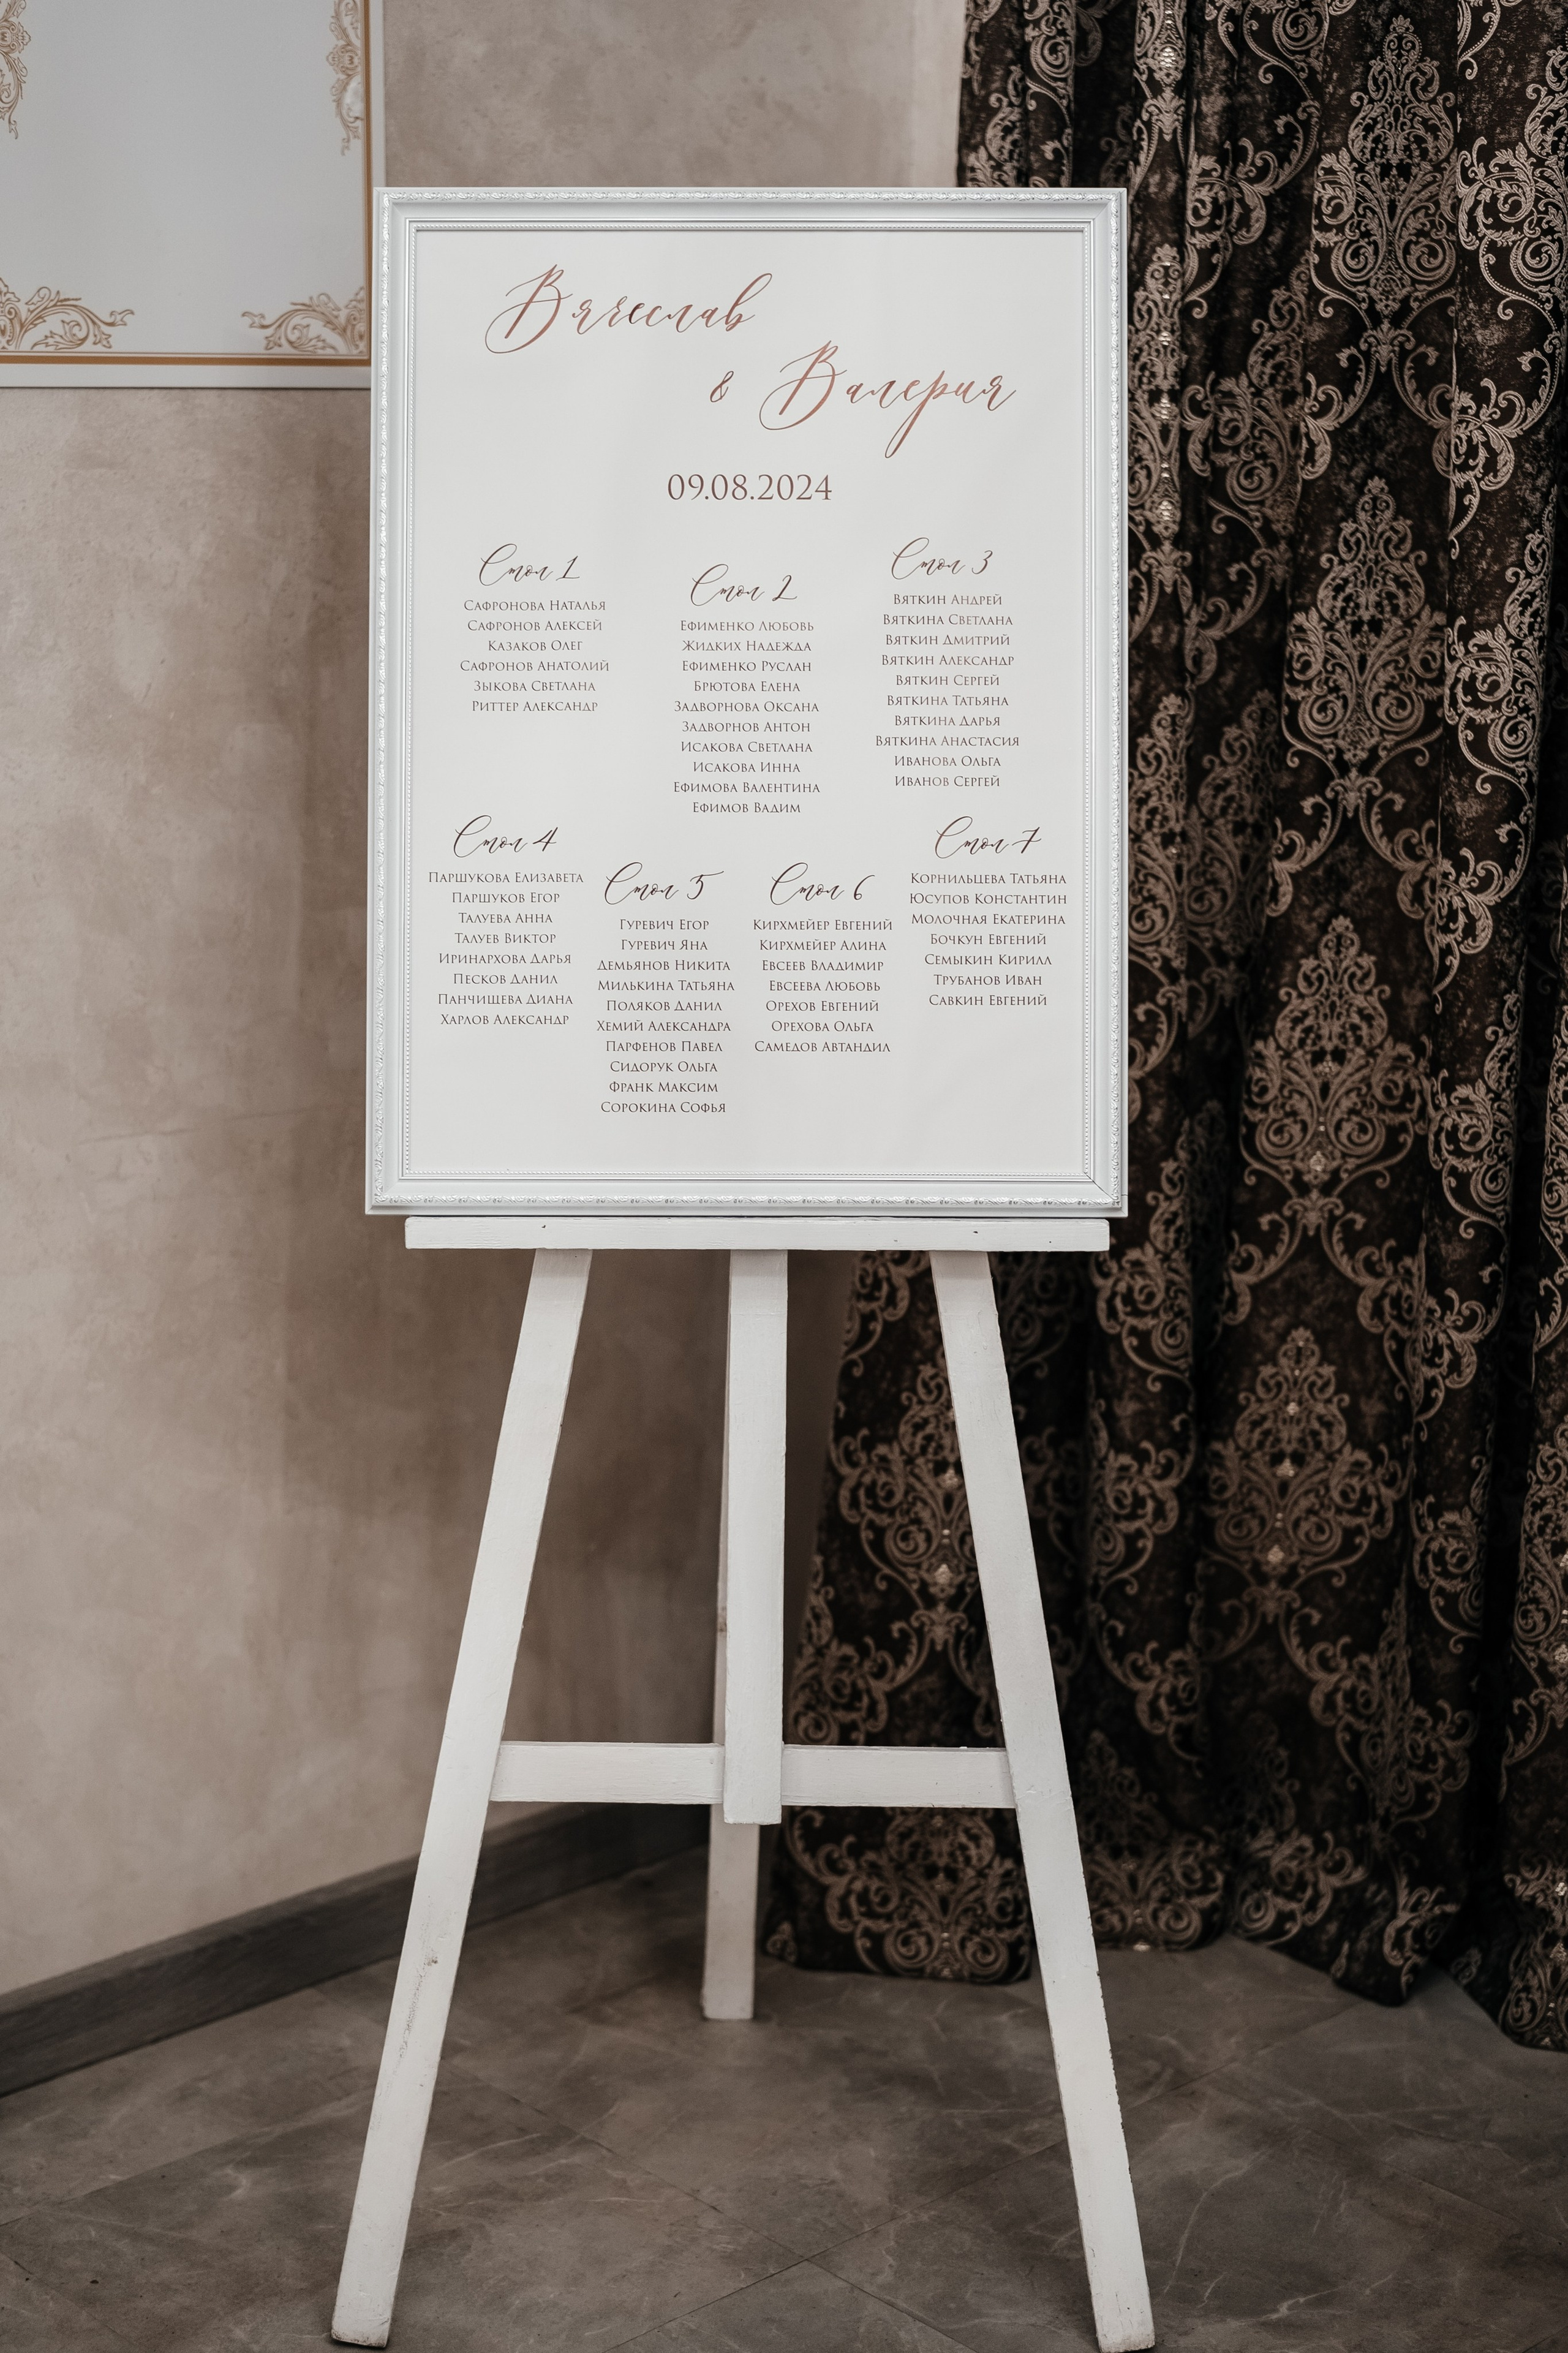 Вячеслав
& Валерия
09.08.2024
Стол 1
Сафронова Наталья
Сафронов Алексей
Казаков Олег
Сафронов Анатолий
Зыкова Светлана
Риттер Александр
Стол 2
Ефименко Любовь
Жидких Надежда
Ефименко Руслан
Брютова Елена
Задворнова Оксана
Задворнов Антон
Исакова Светлана
Исакова Инна
Ефимова Валентина
Ефимов Вадим
Стол 3
Вяткин Андрей
Вяткина Светлана
Вяткин Дмитрий
Вяткин Александр
Вяткин Сергей
Вяткина Татьяна
Вяткина Дарья
Вяткина Анастасия
Иванова Ольга
Иванов Сергей
Стол 4
Паршукова Елизавета
Паршуков Егор
Талуева Анна
Талуев Виктор
Иринархова Дарья
Песков Данил
Панчищева Диана
Харлов Александр
Стол 5
Гуревич Егор
Гуревич Яна
Демьянов Никита
Милькина Татьяна
Поляков Данил
Хемий Александра
Парфенов Павел
Сидорук Ольга
Франк Максим
Сорокина Софья
Стол 6
Кирхмейер Евгений
Кирхмейер Алина
Евсеев Владимир
Евсеева Любовь
Орехов Евгений
Орехова Ольга
Самедов Автандил
Стол 7
Корнильцева Татьяна
Юсупов Константин
Молочная Екатерина
Бочкун Евгений
Семыкин Кирилл
Трубанов Иван
Савкин Евгений